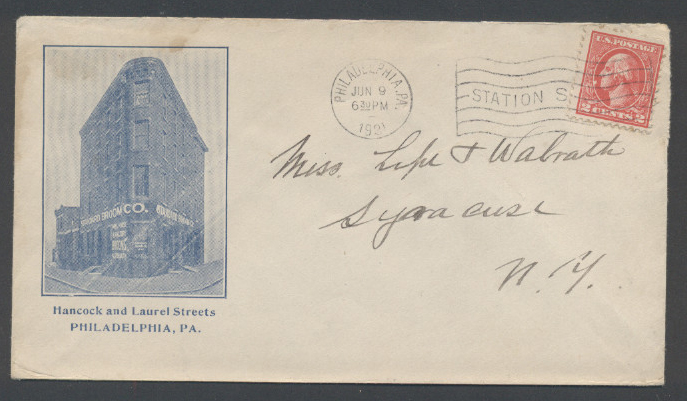 CO.
Hancock and Laurel Streets
PHILADELPHIA, PA.
PHILADELPHIA, PA.
JUN 9
630 PM
1921
STATION S.
U.S. POSTAGE
2 CENTS 2
Miss. Lipe & Walrath
Syracuse
N.Y.